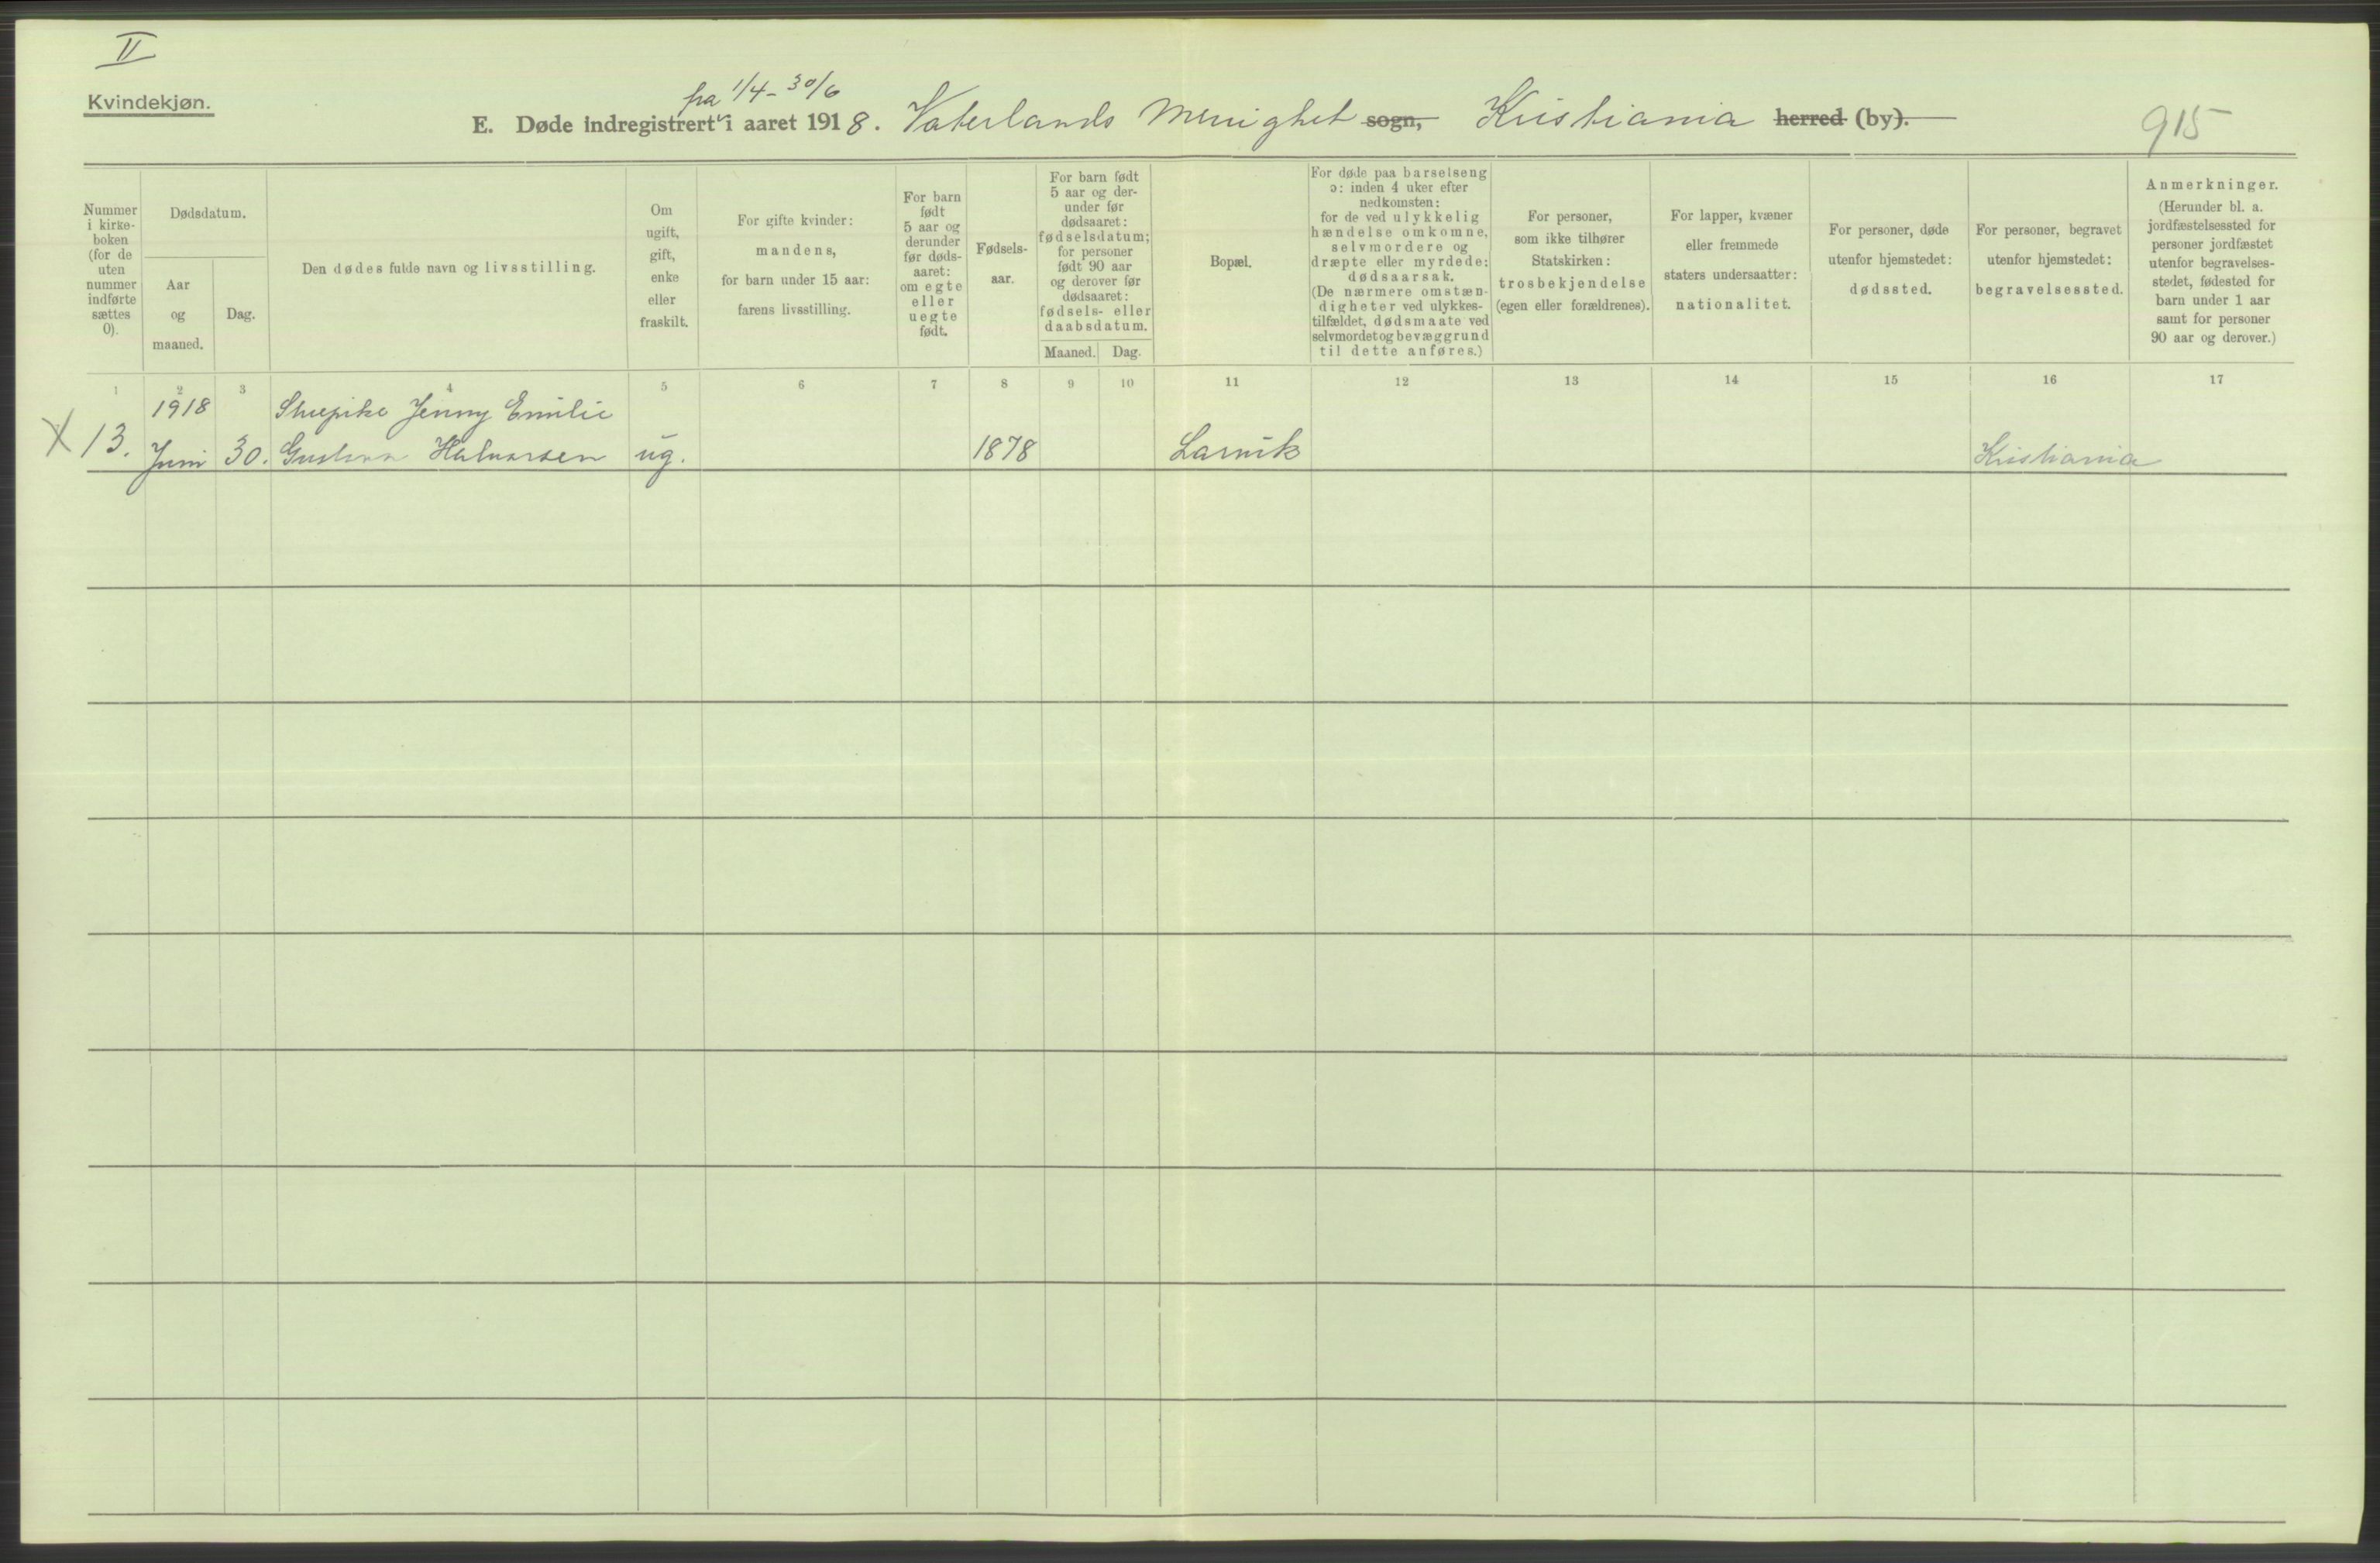 II
Kvindekjøn.
fra 1/4 - 30/6
E. Døde indregistrert i aaret 1918. Vaterlands Menighet sogn, Kristiania herred (by).
915
Nummer
i kirke-
boken
(for de
uten
nummer
indførte
sættes
0).
Dødsdatum.
Aar
og
maaned.
Dag.
Den dødes fulde navn og livsstilling.
Om
ugift,
gift,
enke
eller
fraskilt.
For gifte kvinder:
mandens,
for barn under 15 aar:
farens livsstilling.
For barn
født
5 aar og
derunder
før døds-
aaret:
om egte
eller
uegte
født.
Fødsels-
aar.
For barn født
5 aar og der-
under før
dødsaaret:
fødselsdatum;
for personer
født 90 aar
og derover før
dødsaaret:
fødsels- eller
daabsdatum.
Maaned.
Dag.
Bopæl.
For døde paa barselseng
ɔ: inden 4 uker efter
nedkomsten:
for de ved ulykkelig
hændelse omkomne,
selvmordere og
dræpte eller myrdede:
dødsaarsak.
(De nærmere omstæn-
digheter ved ulykkes-
tilfældet, dødsmaate ved
selvmordet og bevæggrund
til dette anføres.)
For personer,
som ikke tilhører
Statskirken:
trosbekjendelse
(egen eller forældrenes).
For lapper, kvæner
eller fremmede
staters undersaatter:
nationalitet.
For personer, døde
utenfor hjemstedet:
dødssted.
For personer, begravet
utenfor hjemstedet:
begravelsessted.
Anmerkninger.
(Herunder bl. a.
jordfæstelsessted for
personer jordfæstet
utenfor begravelses-
stedet, fødested for
barn under 1 aar
samt for personer
90 aar og derover.)
1 2 3 4 5 6 7 8 9 10 11 12 13 14 15 16 17
1918 Jenny Emilie
X 13. Juni 30. Gustava Halvorsen ug. 1878 Larvik Kristiania